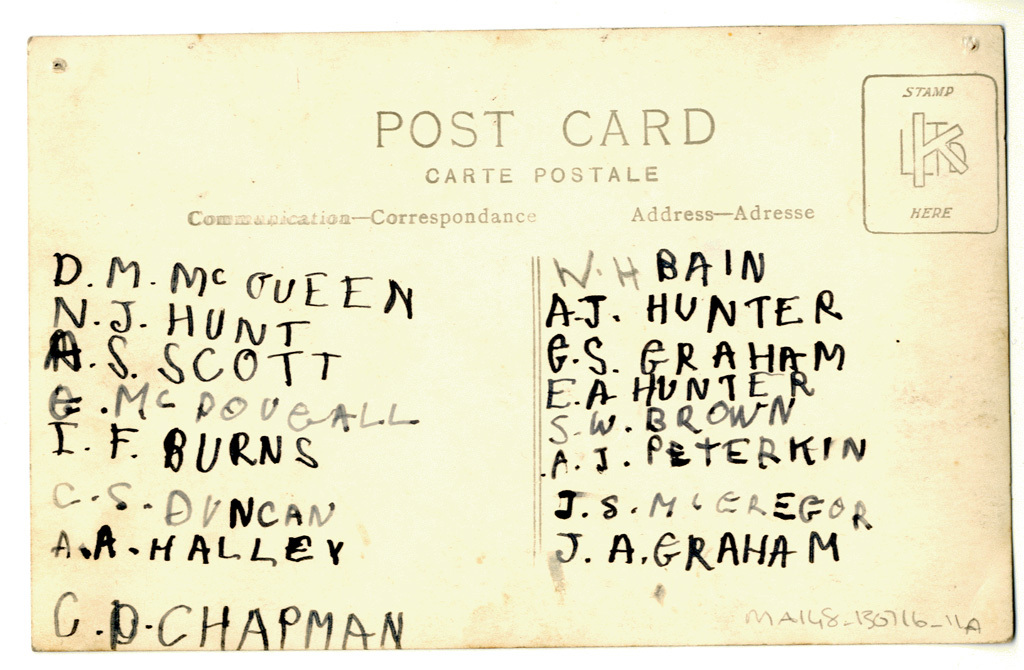 POST CARD
CARTE POSTALE
Communication—Correspondance
Address—Adresse
STAMP
HERE
D. M. Mc QUEEN
N. J. HUNT
A. S. SCOTT
G. Mc DOUGALL
I. F. BURNS
C. S. DUNCAN
A. A. HALLEY
C. D. CHAPMAN
W. H BAIN
A.J. HUNTER
G.S. GRAHAM
E.A HUNTER
S.W. BROWN
A. J. PETERKIN
J. S. McGREGOR
J. A. GRAHAM